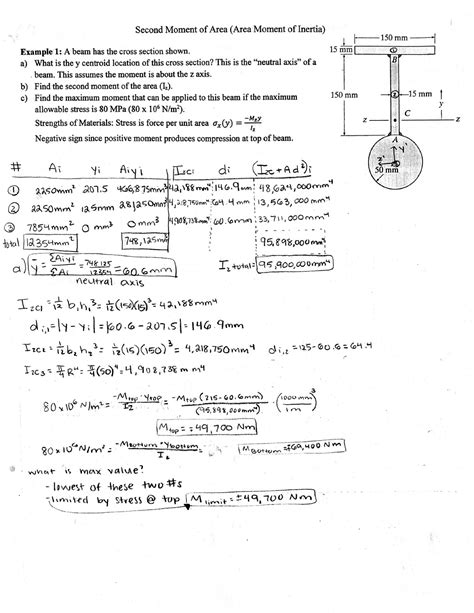 Second Moment of Area (Area Moment of Inertia)
Example 1: A beam has the cross section shown.
a) What is the y centroid location of this cross section? This is the "neutral axis" of a
beam. This assumes the moment is about the z axis.
b) Find the second moment of the area (Iz).
c) Find the maximum moment that can be applied to this beam if the maximum
allowable stress is 80 MPa (80 x 10⁶ N/m²).
Strengths of Materials: Stress is force per unit area σx(y) = −Mzy/Iz
Negative sign since positive moment produces compression at top of beam.
150 mm
15 mm
①
B
150 mm
②
15 mm
y
z
C
z
A
y'
z'
50 mm
# Ai yi Aiyi Izci di (Izc + Ad²)i
① 2250mm² 207.5 466,875mm³ 42,188mm⁴ 146.9mm 48,624,000mm⁴
② 2250mm² 125mm 281,250mm³ 4,218,750mm⁴ 64.4 mm 13,563,000mm⁴
③ 7854mm² 0 mm³ 0 mm³ 4,908,738mm⁴ 60.6mm 33,711,000mm⁴
total 12354mm² 748,125mm³ 95,898,000mm⁴
a) ȳ = ΣAiyi/ΣAi = 748125/12354 = 60.6mm Iz total = 95,900,000mm⁴
neutral axis
Izc1 = 1/12 b₁h₁³ = 1/12(150)(15)³ = 42,188mm⁴
di,1 = |ȳ − yi| = |60.6 − 207.5| = 146.9mm
Izc2 = 1/12 b₂h₂³ = 1/12(15)(150)³ = 4,218,750mm⁴ di,2 = 125−60.6 = 64.4
Izc3 = π/4 R⁴ = π/4(50)⁴ = 4,908,738 mm⁴
80x10⁶ N/m² = −Mtop·ytop/Iz = −Mtop(215−60.6mm)/(95,898,000mm⁴) · (1000mm/1m)³
Mtop = ±49,700 Nm
80x10⁶ N/m² = −Mbottom·ybottom/Iz = Mbottom = ±69,400 Nm
what is max value?
- lowest of these two #s
- limited by stress @ top Mlimit = ±49,700 Nm